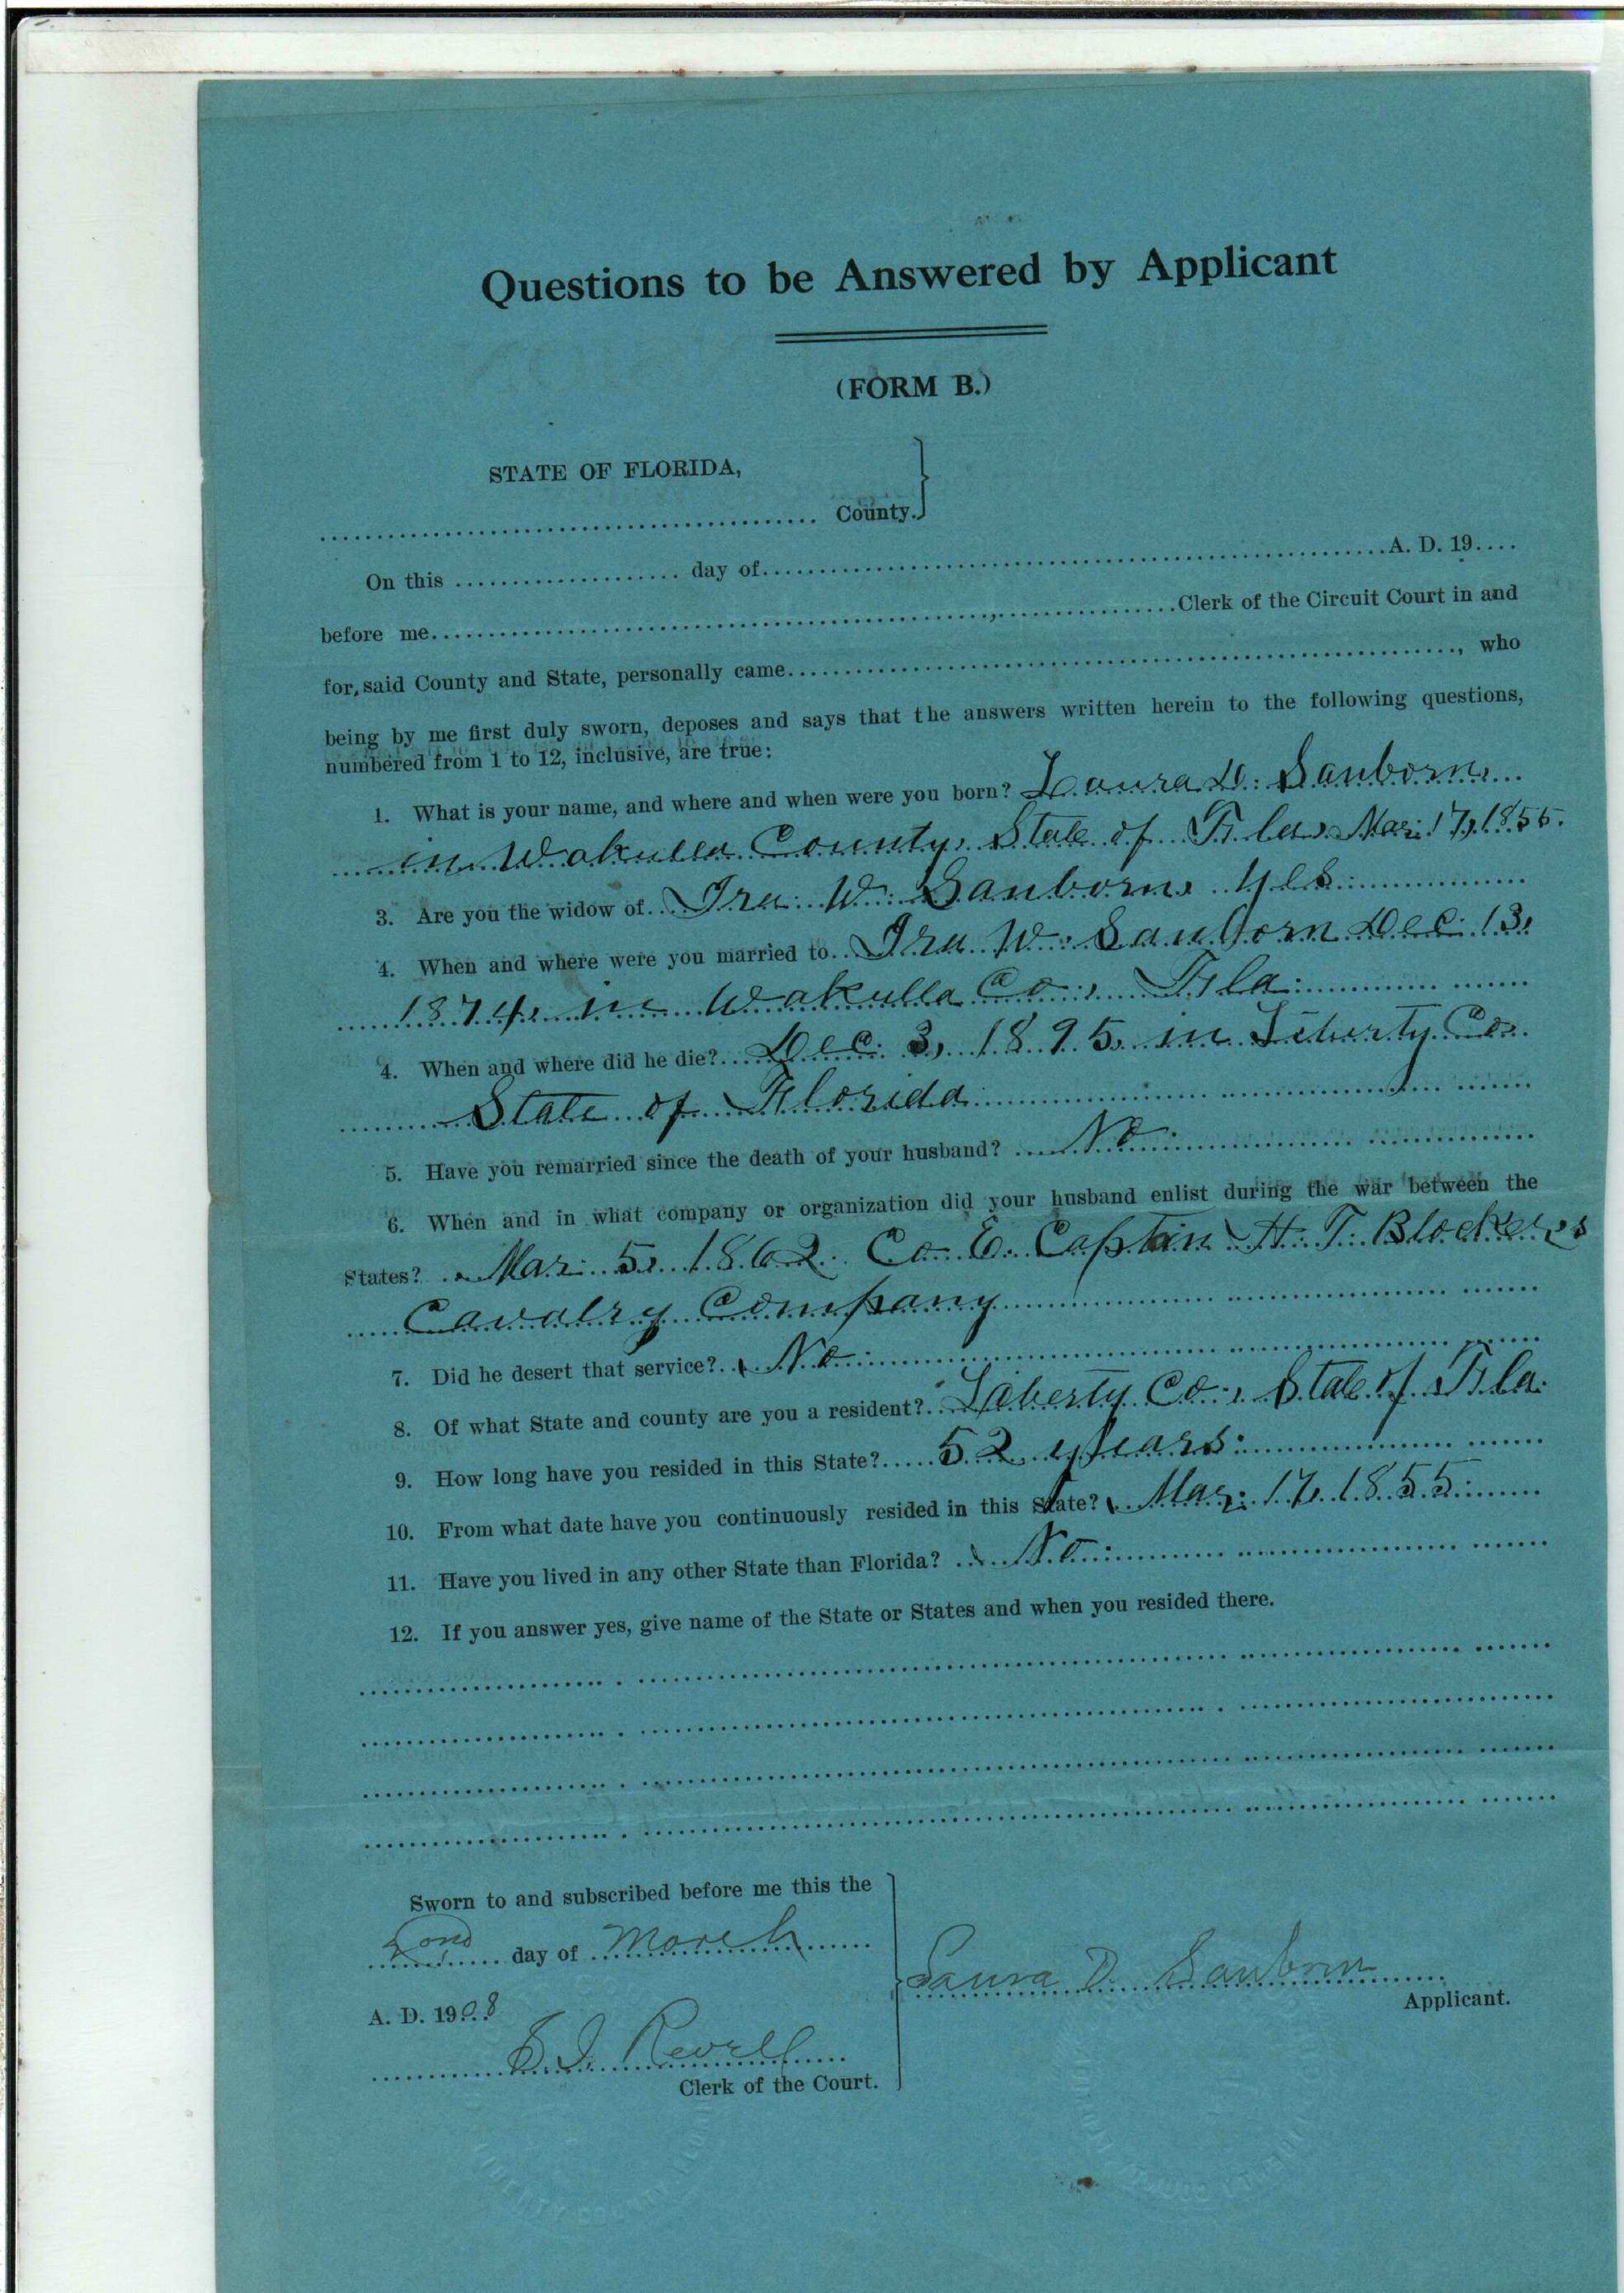 Questions to be Answered by Applicant
(FORM B.)
STATE OF FLORIDA,
County.
On this day of A. D. 19
before me Clerk of the Circuit Court in and
for, said County and State, personally came , who
being by me first duly sworn, deposes and says that the answers written herein to the following questions,
numbered from 1 to 12, inclusive, are true:
1. What is your name, and where and when were you born? Laura D. Sanborn,
in Wakulla County, State of Fla. Mar. 17, 1855.
3. Are you the widow of Ira. W. Sanborn, yes.
4. When and where were you married to Ira W. Sanborn Dec. 13,
1874, in Wakulla Co., Fla.
4. When and where did he die? Dec. 3, 1895, in Liberty Co.
State of Florida
5. Have you remarried since the death of your husband? No.
6. When and in what company or organization did your husband enlist during the war between the
States? Mar. 5, 1862. Co. E. Captin H. T. Blocker,s
Cavalry Company
7. Did he desert that service? No.
8. Of what State and county are you a resident? Liberty Co., State of Fla.
9. How long have you resided in this State? 52 years.
10. From what date have you continuously resided in this State? Mar. 17, 1855.
11. Have you lived in any other State than Florida? No.
12. If you answer yes, give name of the State or States and when you resided there.
Sworn to and subscribed before me this the
2nd day of March
A. D. 1908
Laura D. Sanborn
Applicant.
Revell
Clerk of the Court.
LIBERTY COUNTY